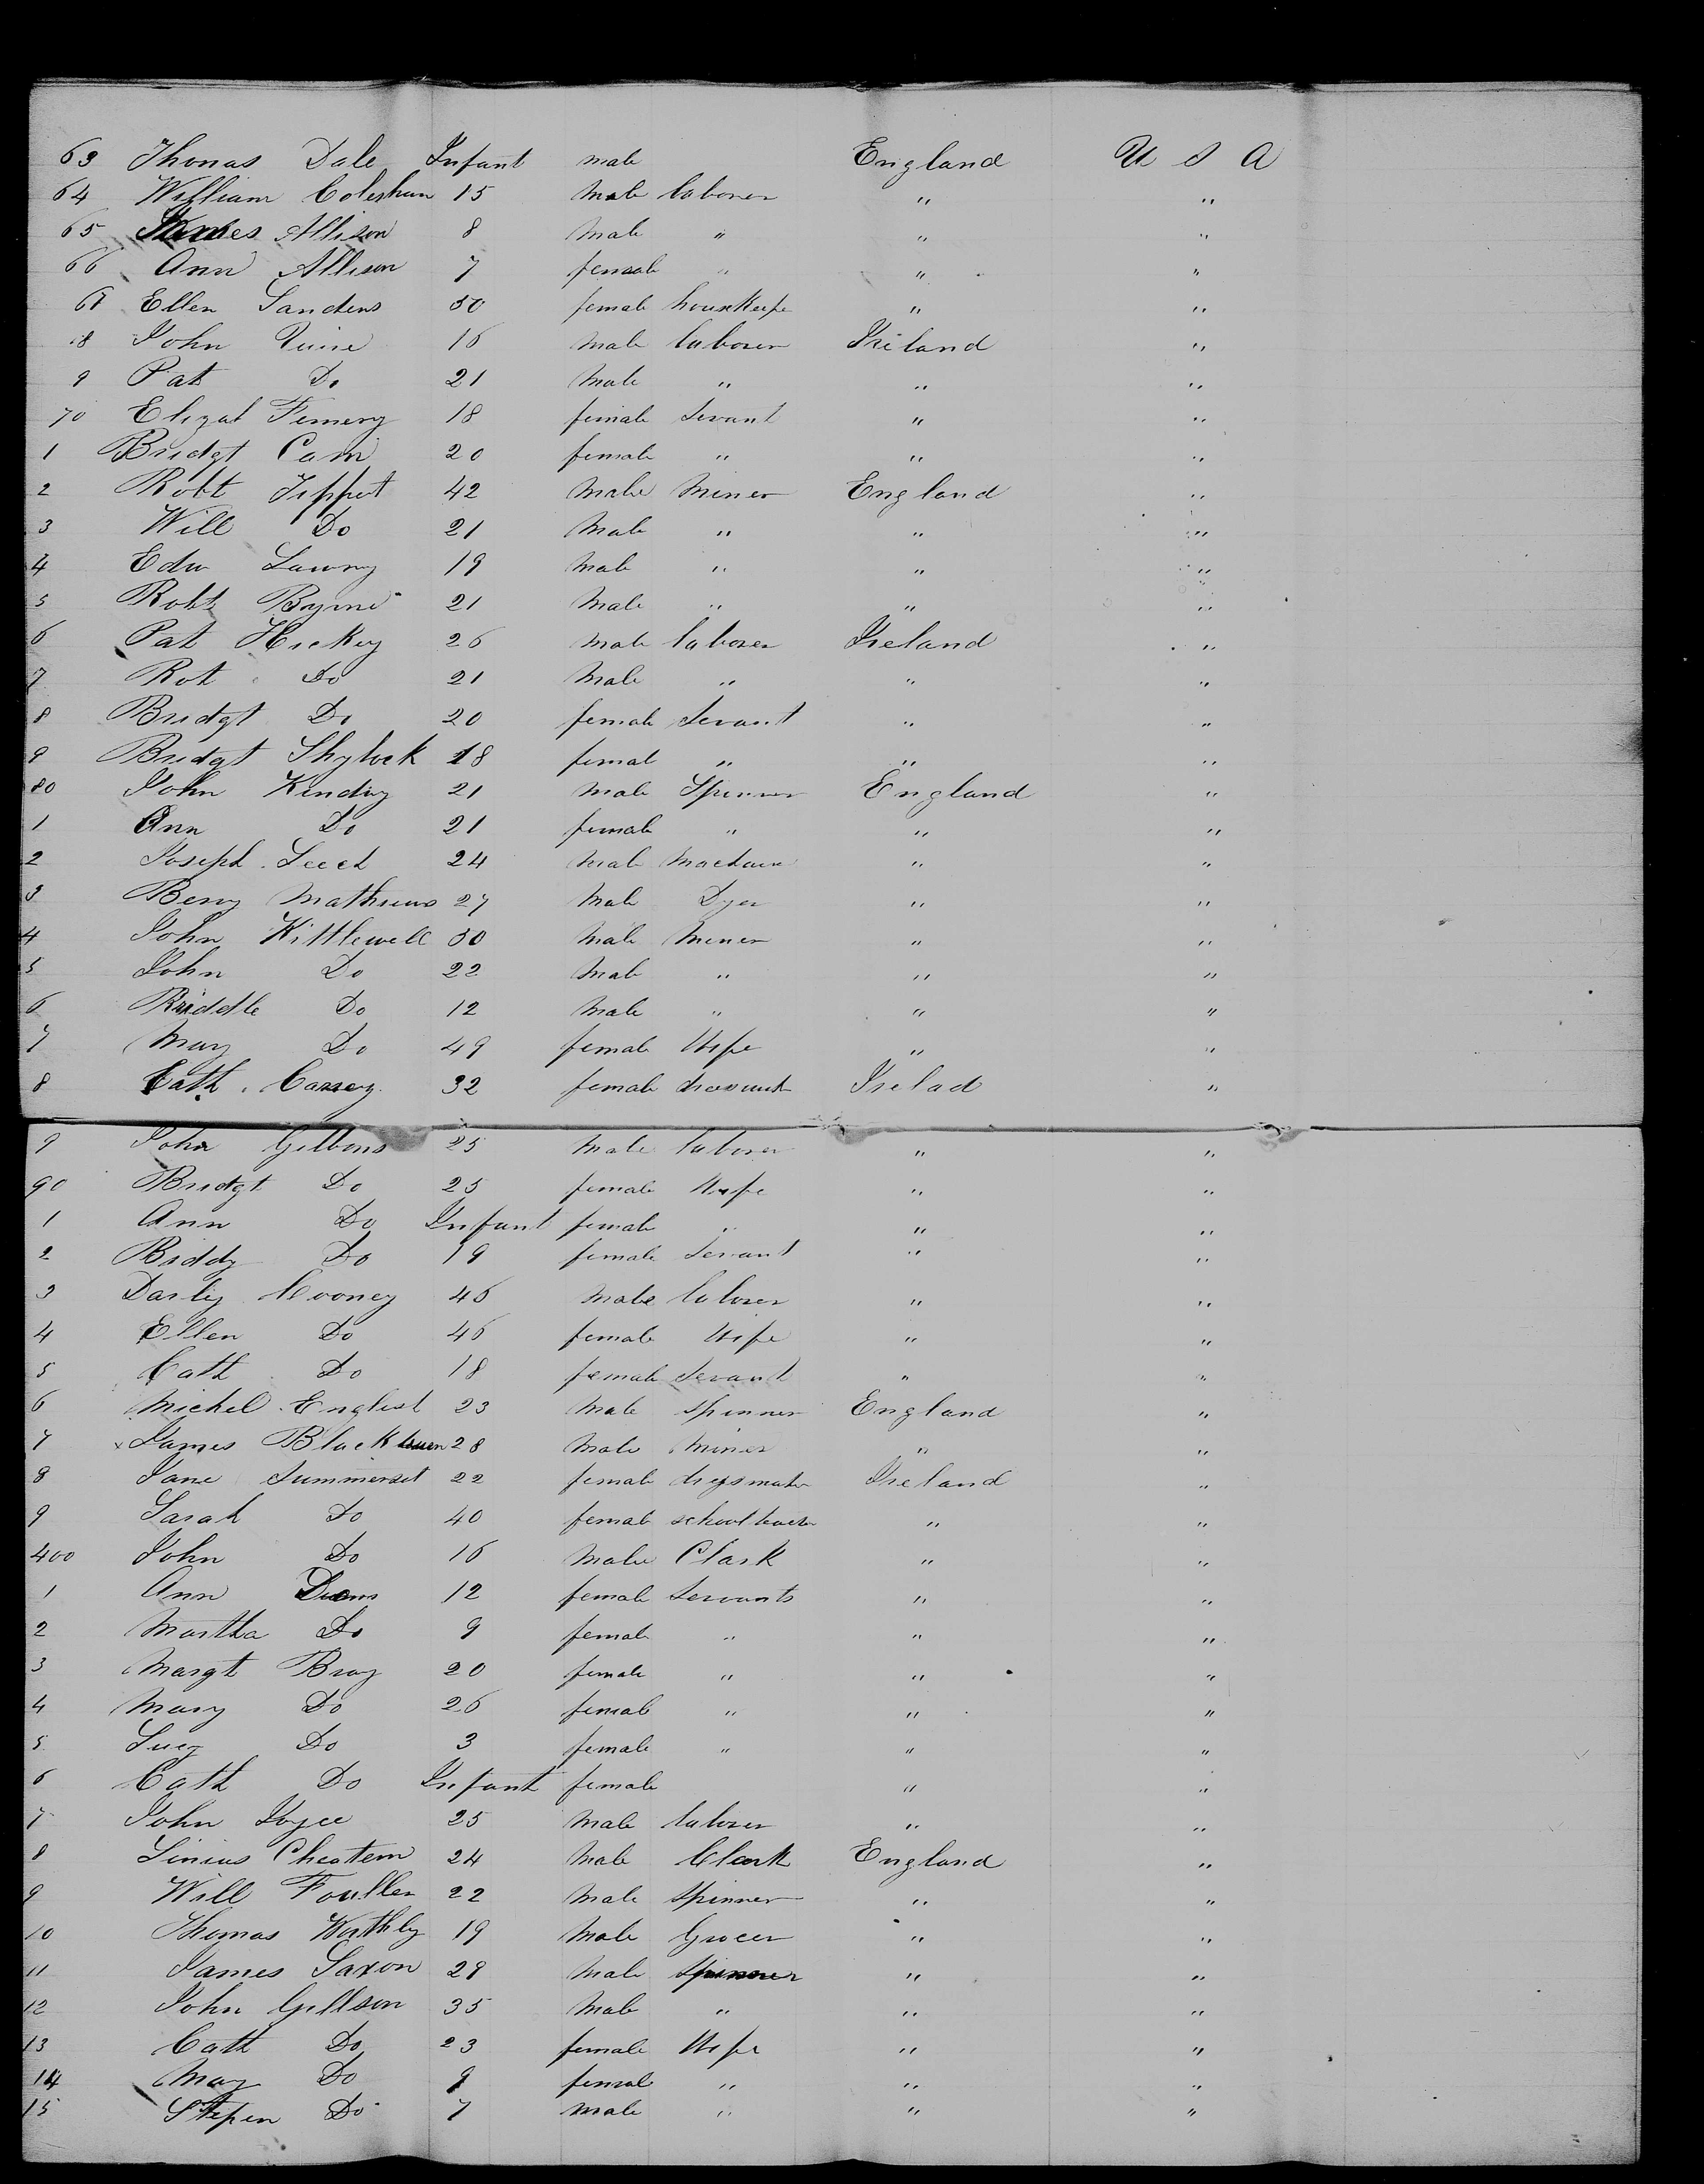 63 Thomas Dale Infant male England U S A
64 William Coleshun 15 Male laborer " "
65 Allison 8 Male " " "
66 Ann Allison 7 female " " "
67 Ellen Sanders 30 female houskeepe " "
68 John Quire 16 Male laborer Ireland "
9 Pat Do 21 Male " " "
70 Elizat Femery 18 female Servant " "
1 Bridgt Cain 20 female " " "
2 Robt Tippet 42 Male Miner England "
3 Will Do 21 Male " " "
4 Edw Lawry 19 Male " " "
5 Robt Byrne 21 Male " " "
6 Pat Hickey 26 Male laborer Ireland "
7 Rot Do 21 Male " " "
8 Bridgt Do 20 female Servant " "
9 Bridgt Shylock 18 femal " " "
80 John Kindry 21 Male Spinner England "
1 Ann Do 21 female " " "
2 Joseph Leech 24 Male " "
3 Benj Mathews 27 Male Dyer " "
4 John Kittlewell 50 Male Miner " "
5 John Do 22 Male " " "
6 Riddle Do 12 Male " " "
7 Mary Do 49 female Wife " "
8 Cath Casey 32 female Irelad "
9 John Gibbons 25 Male laborer " "
90 Bridgt Do 25 female Wife " "
1 Ann Do Infant female " " "
2 Biddy Do 19 female Servant " "
3 Darby Cooney 46 Male laborer " "
4 Ellen Do 46 female Wife " "
5 Cath Do 18 female Servant " "
6 Michel English 23 Male Spinner England "
7 x James Blackburn 28 Male Miner " "
8 Jane Summerset 22 female dressmaker Ireland "
9 Sarah Do 40 female schoolteacher " "
400 John Do 16 Male Clark " "
1 Ann 12 female Servants " "
2 Martha Do 9 female " " "
3 Margt Bray 20 female " " "
4 Mary Do 26 female " " "
5 Lucy Do 3 female " " "
6 Cath Do Infant female " "
7 John Joyce 25 Male laborer " "
8 Cheatem 24 Male Clark England "
9 Will Fouller 22 Male Spinner " "
10 Thomas Worthly 19 Male Grocer " "
11 James Saxon 29 Male Spinner " "
12 John Gillson 35 Male " " "
13 Cath Do 23 female Wife " "
14 May Do 9 female " " "
15 Stepen Do 7 male " " "